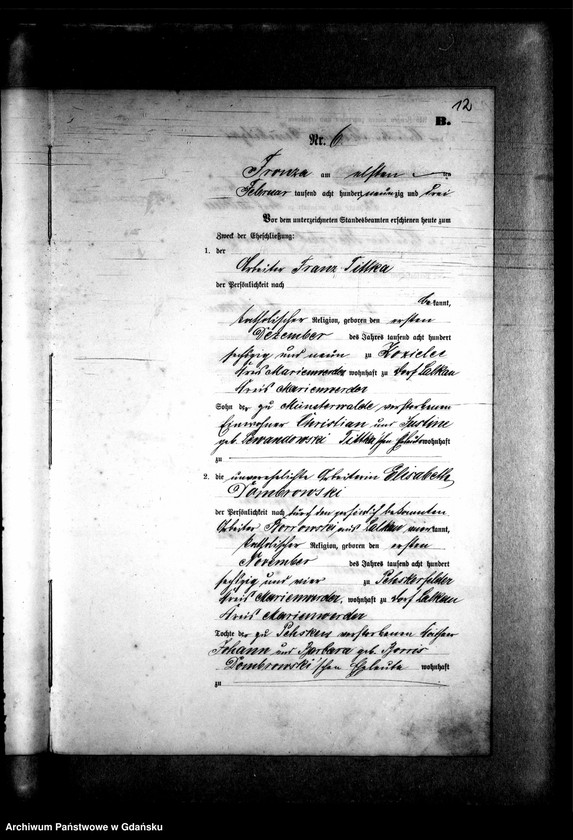 12
B.
Nr. 6
Tronza am elften
Februar tausend acht hundert neunzig und drei
Vor dem unterzeichneten Standesbeamten erschienen heute zum
Zweck der Eheschließung:
1. der
Arbeiter Franz Tittka
der Persönlichkeit nach
bekannt,
katholischer Religion, geboren den ersten
Dezember des Jahres tausend acht hundert
sechzig und neun zu Kozielec
Kreis Marienwerder wohnhaft zu Dorf Lalkau
Kreis Marienwerder
Sohn der zu Münsterwalde verstorbenen
Einwohner Christian und Justine
geb. Lewandowski Tittka'schen Eheleute wohnhaft
zu
2. die unverehelichte Arbeiterin Elisabeth
Dombrowski
der Persönlichkeit nach durch den persönlich bekannten
Arbeiter Borrowski aus Lalkau anerkannt,
katholischer Religion, geboren den ersten
November des Jahres tausend acht hundert
sechzig und vier zu Pehskerfelde
Kreis Marienwerder, wohnhaft zu Dorf Lalkau
Kreis Marienwerder
Tochter der zu Pehsken verstorbenen
Johann und Barbara geb. Borris
Dombrowski'schen Eheleute wohnhaft
zu
Archiwum Państwowe w Gdańsku